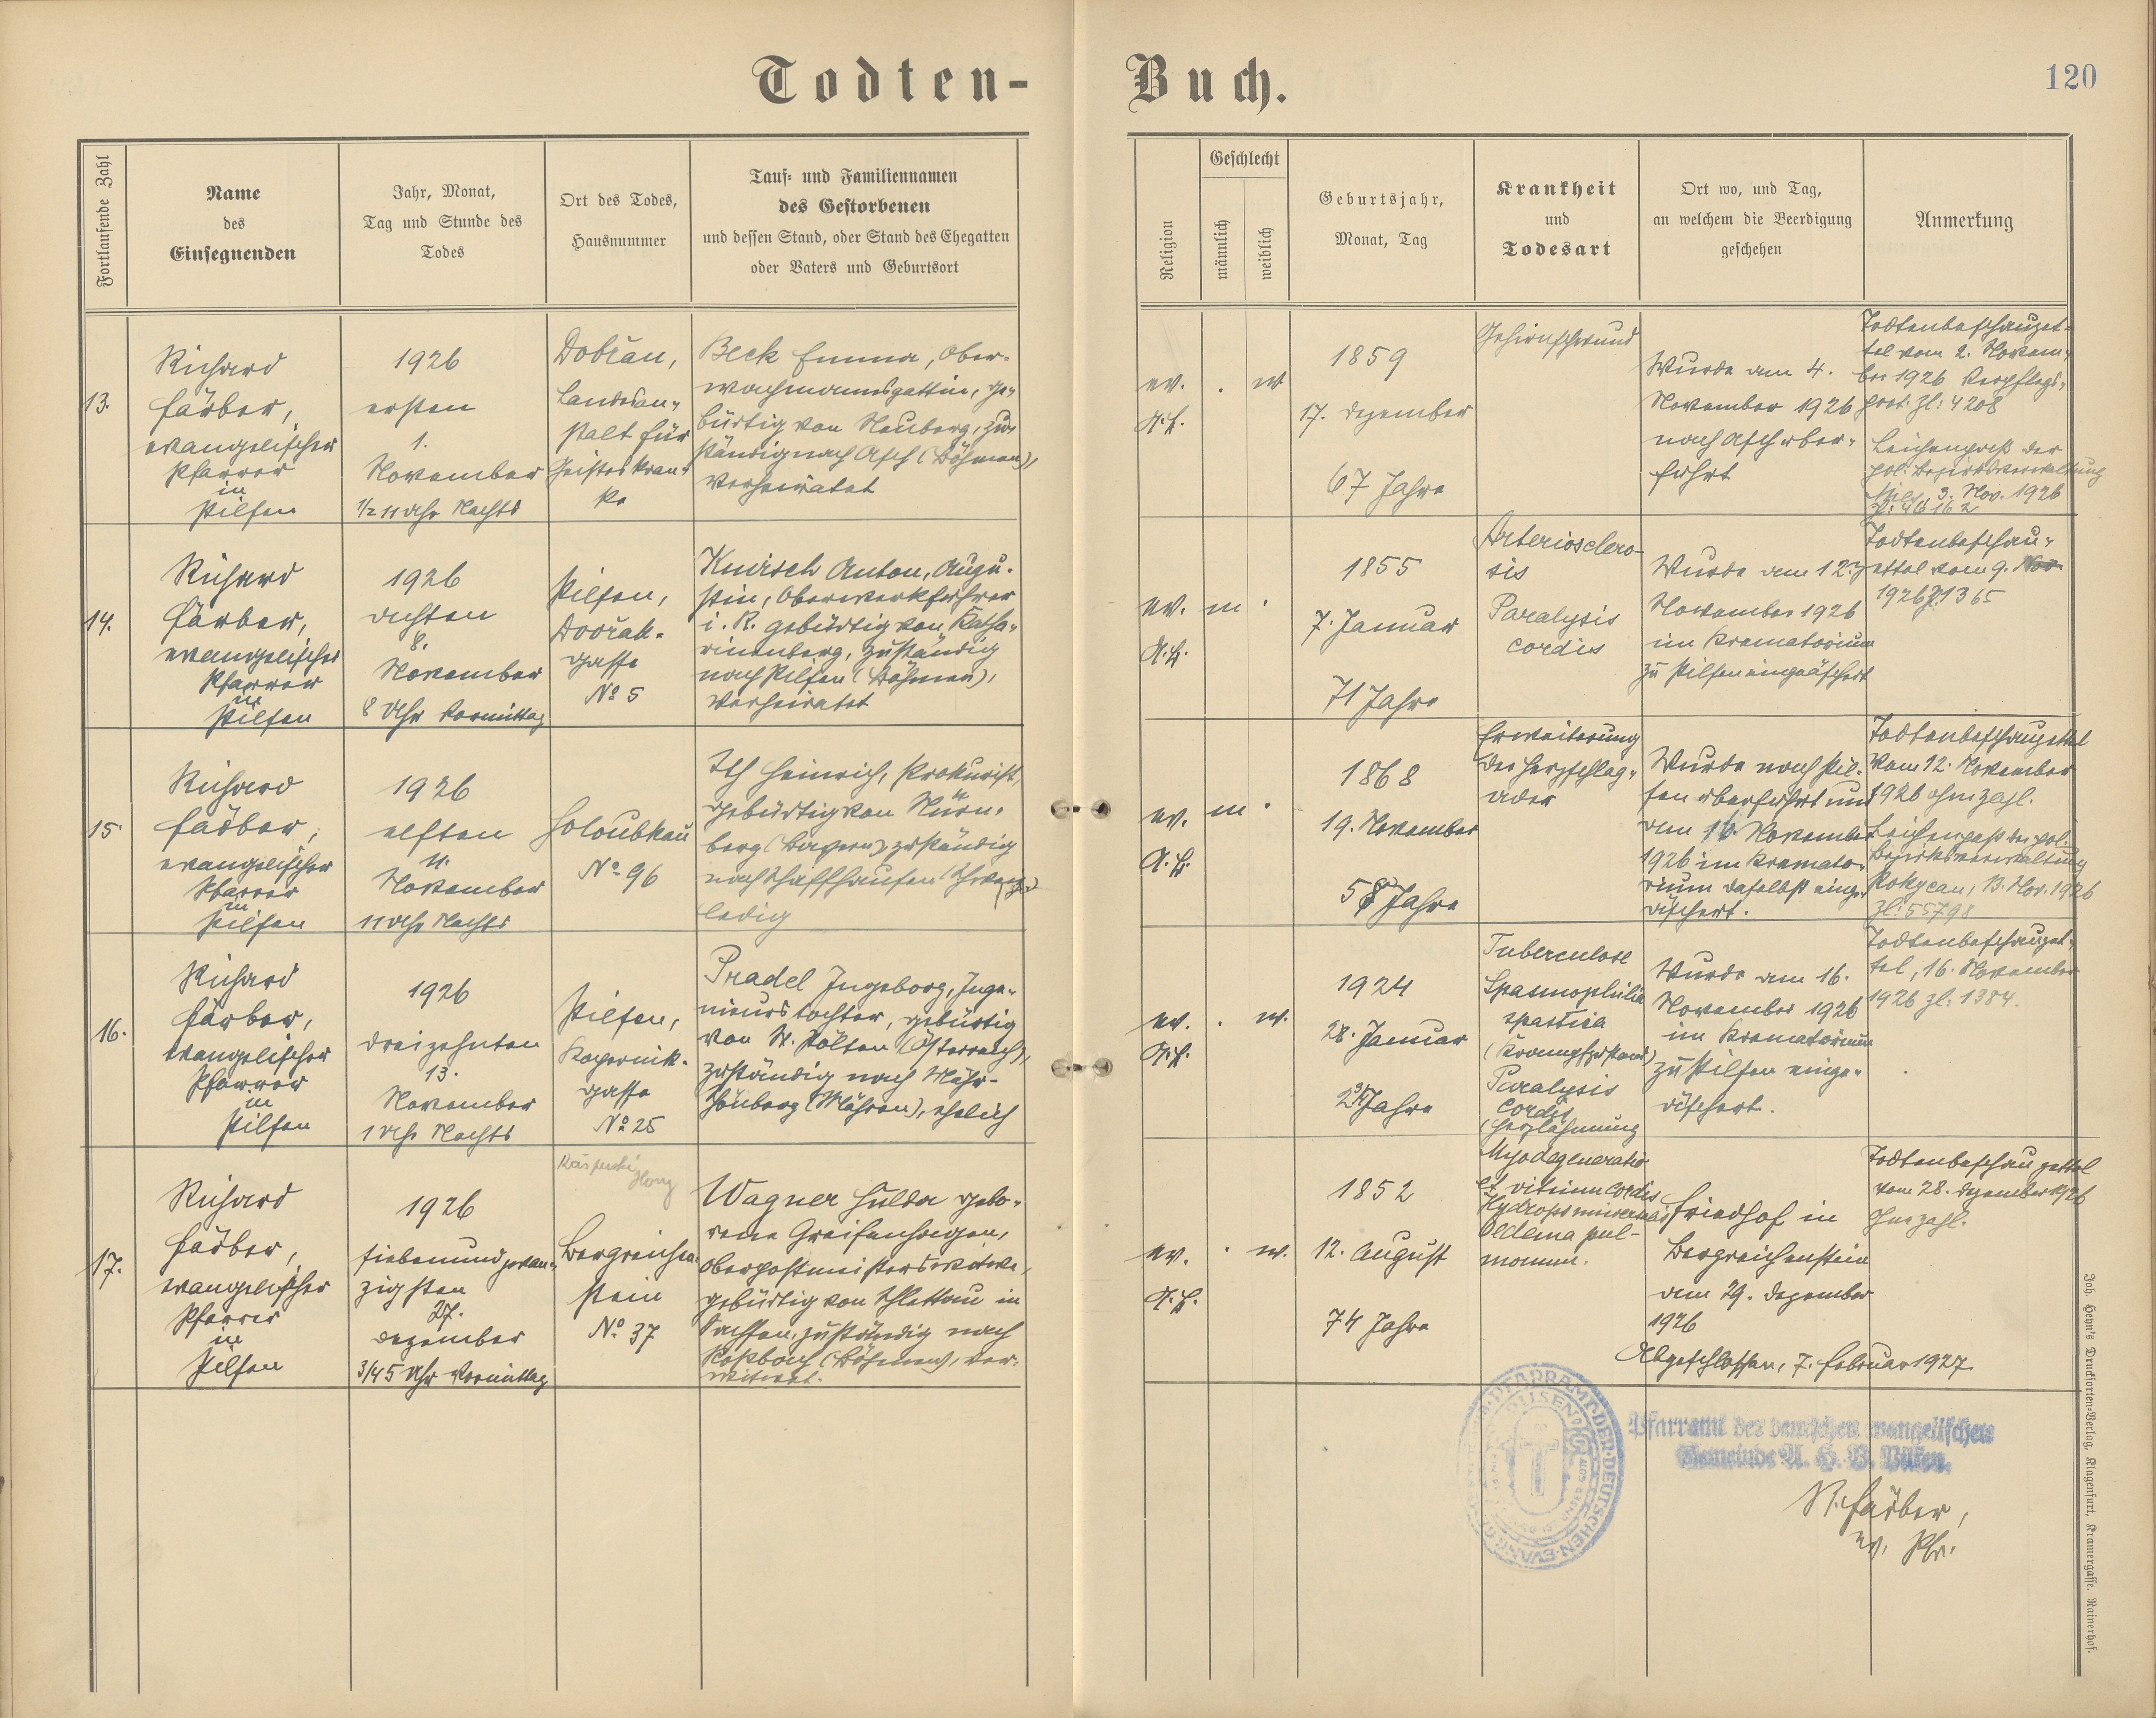 Todten-
Buch.
120
Fortlaufende Zahl
Name
des
Einsegnenden
Jahr, Monat,
Tag und Stunde des
Todes
Ort des Todes,
Hausnummer
Tauf- und Familiennamen
des Gestorbenen
und dessen Stand, oder Stand des Ehegatten
oder Vaters und Geburtsort
Religion
Geschlecht
männlich
weiblich
Geburtsjahr,
Monat, Tag
Krankheit
und
Todesart
Ort wo, und Tag,
an welchem die Beerdigung
geschehen
Anmerkung
13.
Richard
Färber,
evangelischer
Pfarrer
in
Pilsen
1926
ersten
1.
November
1/2 11 Uhr Nachts
Dobřan,
Landesan-
stalt für
Geisteskran-
ke
Beck Emma, Ober-
wachmannsgattin, ge-
bürtig von Neuberg, zu-
ständig nach Asch (Böhmen),
verheiratet
ev.
A.B.
w
1859
17. Dezember
67 Jahre
Gehirnschwund
Wurde am 4.
November 1926
nach Asch über-
führt
Todtenbeschauzet-
tel vom 2. Novem-
ber 1926 Verpflegs-
prot. Zl: 4208
Leichenpaß der
pol. Bezirksverwaltung
3. Nov. 1926
14.
Richard
Färber,
evangelischer
Pfarrer
in
Pilsen
1926
achten
8.
November
8 Uhr Vormittag
Pilsen,
Dvořák-
gasse
No 5
Knirsch Anton, Augu-
stin, Oberwerkführer
i. R. gebürtig von Katha-
rinenberg, zuständig
nach Pilsen (Böhmen),
verheiratet
ev.
A.B.
m
1855
7. Januar
71 Jahre
Arteriosclero-
sis
Paralysis
cordis
Wurde am 12.
November 1926
im Krematorium
zu Pilsen eingeäschert
Todtenbeschau-
zettel vom 9. Nov
1926 Zl. 1365
15
Richard
Färber,
evangelischer
Pfarrer
in
Pilsen
1926
elften
11.
November
11 Uhr Nachts
Holoubkau
No 96
Ith Heinrich, Prokurist,
gebürtig von Nürn-
berg (Bayern), zuständig
nach Schaffhausen (Schweiz)
ledig
ev.
A.B.
m
1868
19. November
58 Jahre
Erweiterung
der Herzschlag-
ader
Wurde nach Pil-
sen überführt und
am 16. November
1926 im Kremato-
rium daselbst einge-
äschert.
Todtenbeschauzettel
vom 12. November
1926 ohne Zahl.
Leichenpaß der pol.
Bezirksverwaltung
Rokycan, 13. Nov. 1926
Zl: 55798
16.
Richard
Färber,
evangelischer
Pfarrer
in
Pilsen
1926
dreizehnten
13.
November
1 Uhr Nachts
Pilsen,
Kopernik-
gasse
No 25
Pradel Ingeborg, Inge-
nieurstochter, gebürtig
von St. Pölten (Österreich),
zuständig nach Mähr-
Schönberg (Mähren), ehelich
ev.
A.B.
w.
1924
28. Januar
2 3/4 Jahre
Tuberculose
Spasmophilia
spastica
(Krampfzustand)
Paralysis
cordis
(Herzlähmung
Wurde am 16.
November 1926
im Krematorium
zu Pilsen einge-
äschert.
Todtenbeschauzet-
tel, 16. November
1926 Zl: 1384.
17.
Richard
Färber,
evangelischer
Pfarrer
in
Pilsen
1926
siebenundzwan-
zigsten
27.
Dezember
3/4 5 Uhr Vormittag
Bergreichen-
stein
No 37
Wagner Hulda gebo-
rene Greifenhagen,
Oberpostmeisterswitwe,
gebürtig von Schlettau in
Sachsen, zuständig nach
Roßbach (Böhmen), ver-
witwet.
ev.
A.B.
w.
1852
12. August
74 Jahre
Myodegeneratio
et vitium cordis
Hydrops universalis
Oedema pul-
monum.
Friedhof in
Bergreichenstein
am 29. Dezember
1926
Todtenbeschauzettel
vom 28. Dezember 1926
Ohne Zahl.
Abgeschlossen, 7. Februar 1927
Pfarramt der deutschen evangelischen
Gemeinde A. B. Pilsen.
R. Färber,
ev. Pfr.
Joh. Heyn's Drucksorten-Verlag, Klagenfurt, Kramergasse, Rainerhof.